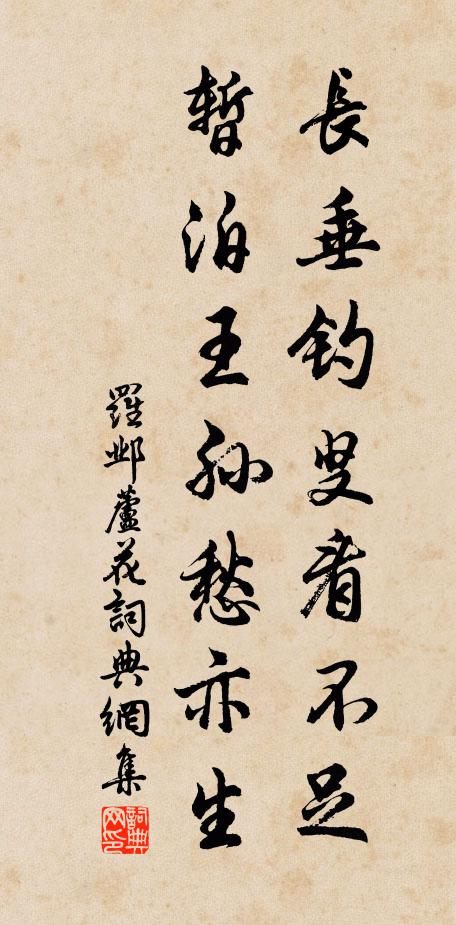 長垂釣叟看不足
暫泊王孫愁亦生
羅鄴蘆花詞典網集
詞典
网印